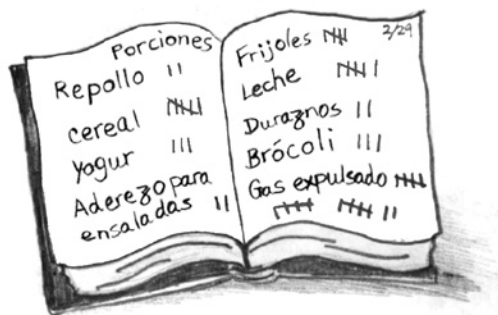 Porciones
Repollo II
cereal 𝍸I
Yogur III
Aderezo para
ensaladas II
2/29
Frijoles 𝍸
Leche 𝍸 I
Duraznos II
Brócoli III
Gas expulsado 𝍸
𝍸 𝍸 II